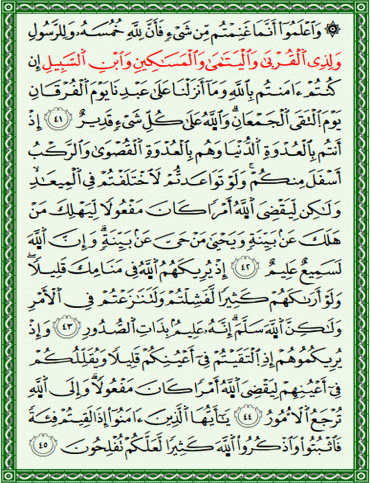 ۞ وَٱعْلَمُوٓا۟ أَنَّمَا غَنِمْتُم مِّن شَىْءٍ فَأَنَّ لِلَّهِ خُمُسَهُۥ وَلِلرَّسُولِ
وَلِذِى ٱلْقُرْبَىٰ وَٱلْيَتَـٰمَىٰ وَٱلْمَسَـٰكِينِ وَٱبْنِ ٱلسَّبِيلِ إِن
كُنتُمْ ءَامَنتُم بِٱللَّهِ وَمَآ أَنزَلْنَا عَلَىٰ عَبْدِنَا يَوْمَ ٱلْفُرْقَانِ
يَوْمَ ٱلْتَقَى ٱلْجَمْعَانِ ۗ وَٱللَّهُ عَلَىٰ كُلِّ شَىْءٍ قَدِيرٌ ﴿٤١﴾ إِذْ
أَنتُم بِٱلْعُدْوَةِ ٱلدُّنْيَا وَهُم بِٱلْعُدْوَةِ ٱلْقُصْوَىٰ وَٱلرَّكْبُ
أَسْفَلَ مِنكُمْ ۚ وَلَوْ تَوَاعَدتُّمْ لَٱخْتَلَفْتُمْ فِى ٱلْمِيعَـٰدِ ۙ
وَلَـٰكِن لِّيَقْضِىَ ٱللَّهُ أَمْرًا كَانَ مَفْعُولًا لِّيَهْلِكَ مَنْ
هَلَكَ عَنۢ بَيِّنَةٍ وَيَحْيَىٰ مَنْ حَىَّ عَنۢ بَيِّنَةٍ ۗ وَإِنَّ ٱللَّهَ
لَسَمِيعٌ عَلِيمٌ ﴿٤٢﴾ إِذْ يُرِيكَهُمُ ٱللَّهُ فِى مَنَامِكَ قَلِيلًا ۖ
وَلَوْ أَرَىٰكَهُمْ كَثِيرًا لَّفَشِلْتُمْ وَلَتَنَـٰزَعْتُمْ فِى ٱلْأَمْرِ
وَلَـٰكِنَّ ٱللَّهَ سَلَّمَ ۗ إِنَّهُۥ عَلِيمٌۢ بِذَاتِ ٱلصُّدُورِ ﴿٤٣﴾ وَإِذْ
يُرِيكُمُوهُمْ إِذِ ٱلْتَقَيْتُمْ فِىٓ أَعْيُنِكُمْ قَلِيلًا وَيُقَلِّلُكُمْ
فِىٓ أَعْيُنِهِمْ لِيَقْضِىَ ٱللَّهُ أَمْرًا كَانَ مَفْعُولًا ۗ وَإِلَى ٱللَّهِ
تُرْجَعُ ٱلْأُمُورُ ﴿٤٤﴾ يَـٰٓأَيُّهَا ٱلَّذِينَ ءَامَنُوٓا۟ إِذَا لَقِيتُمْ فِئَةً
فَٱثْبُتُوا۟ وَٱذْكُرُوا۟ ٱللَّهَ كَثِيرًا لَّعَلَّكُمْ تُفْلِحُونَ ﴿٤٥﴾